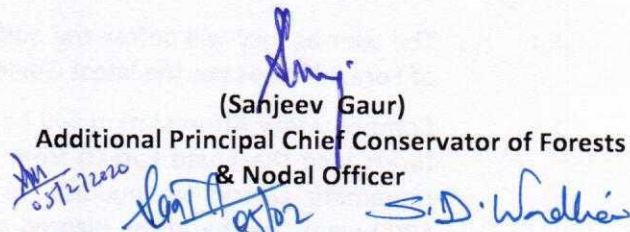 (Sanjeev Gaur)
Additional Principal Chief Conservator of Forests
& Nodal Officer
05/2/2020
05/02
S.D.